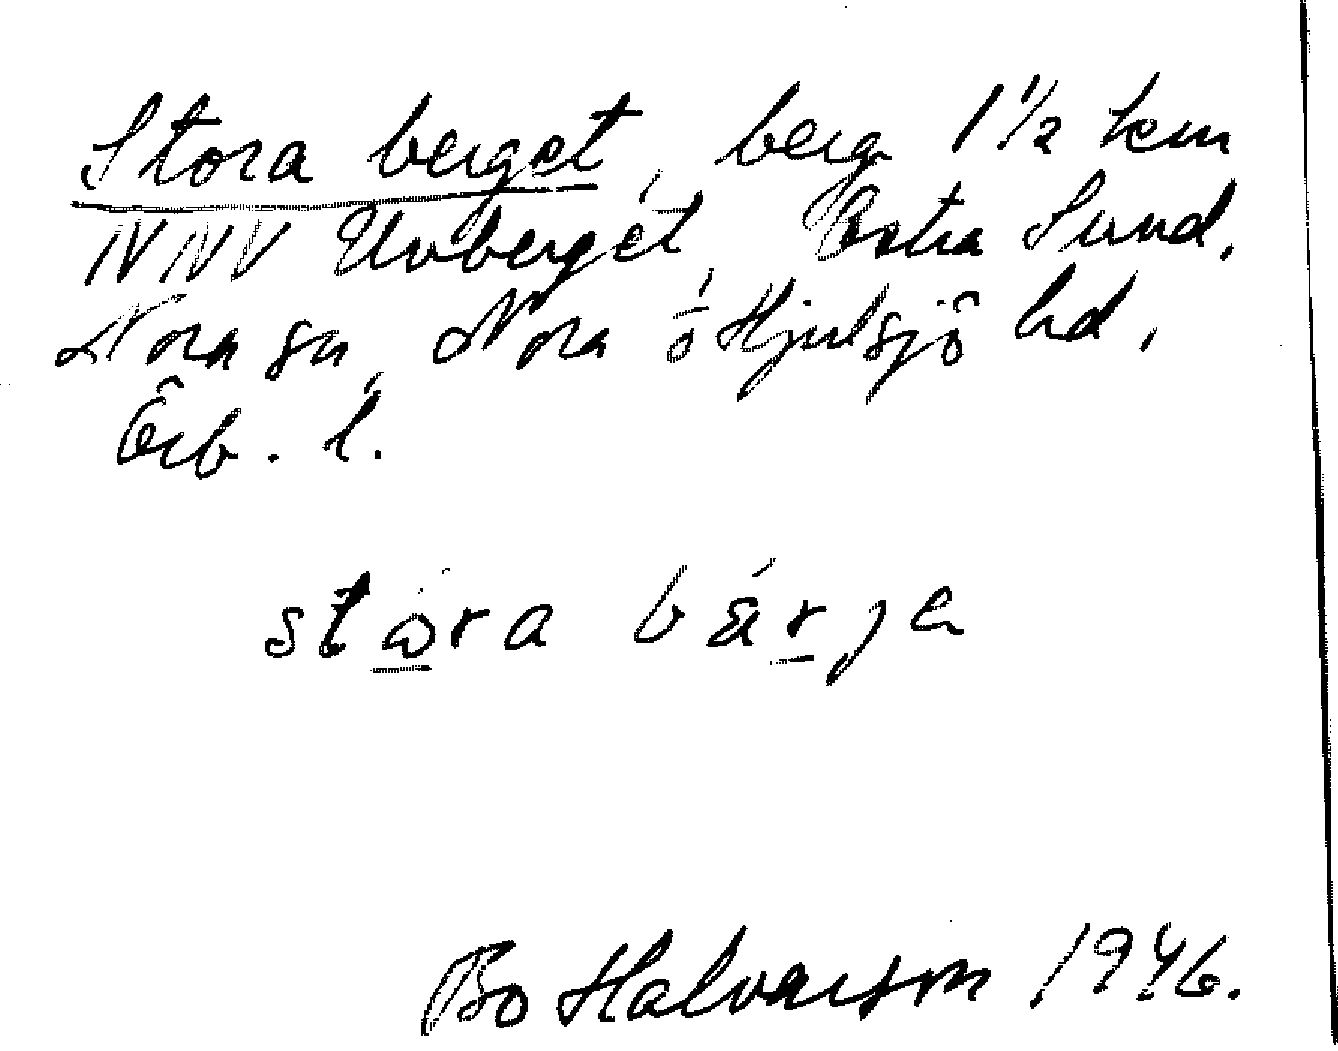 Stora berget, berg 1 1/2 km
NNV Uvberget, Östra Sund,
Nora sn, Nora o Hjulsjö hd,
Örb. l.
stora bärje
Bo Halvarson 1946.